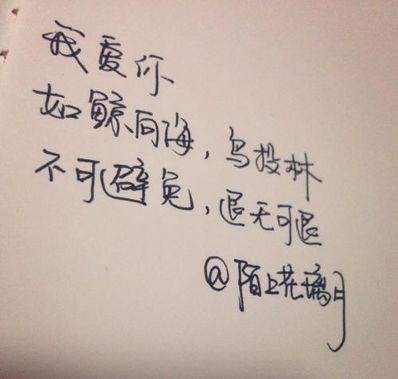 我爱你
如鲸向海,鸟投林
不可避免,退无可退
@陌上花璃月